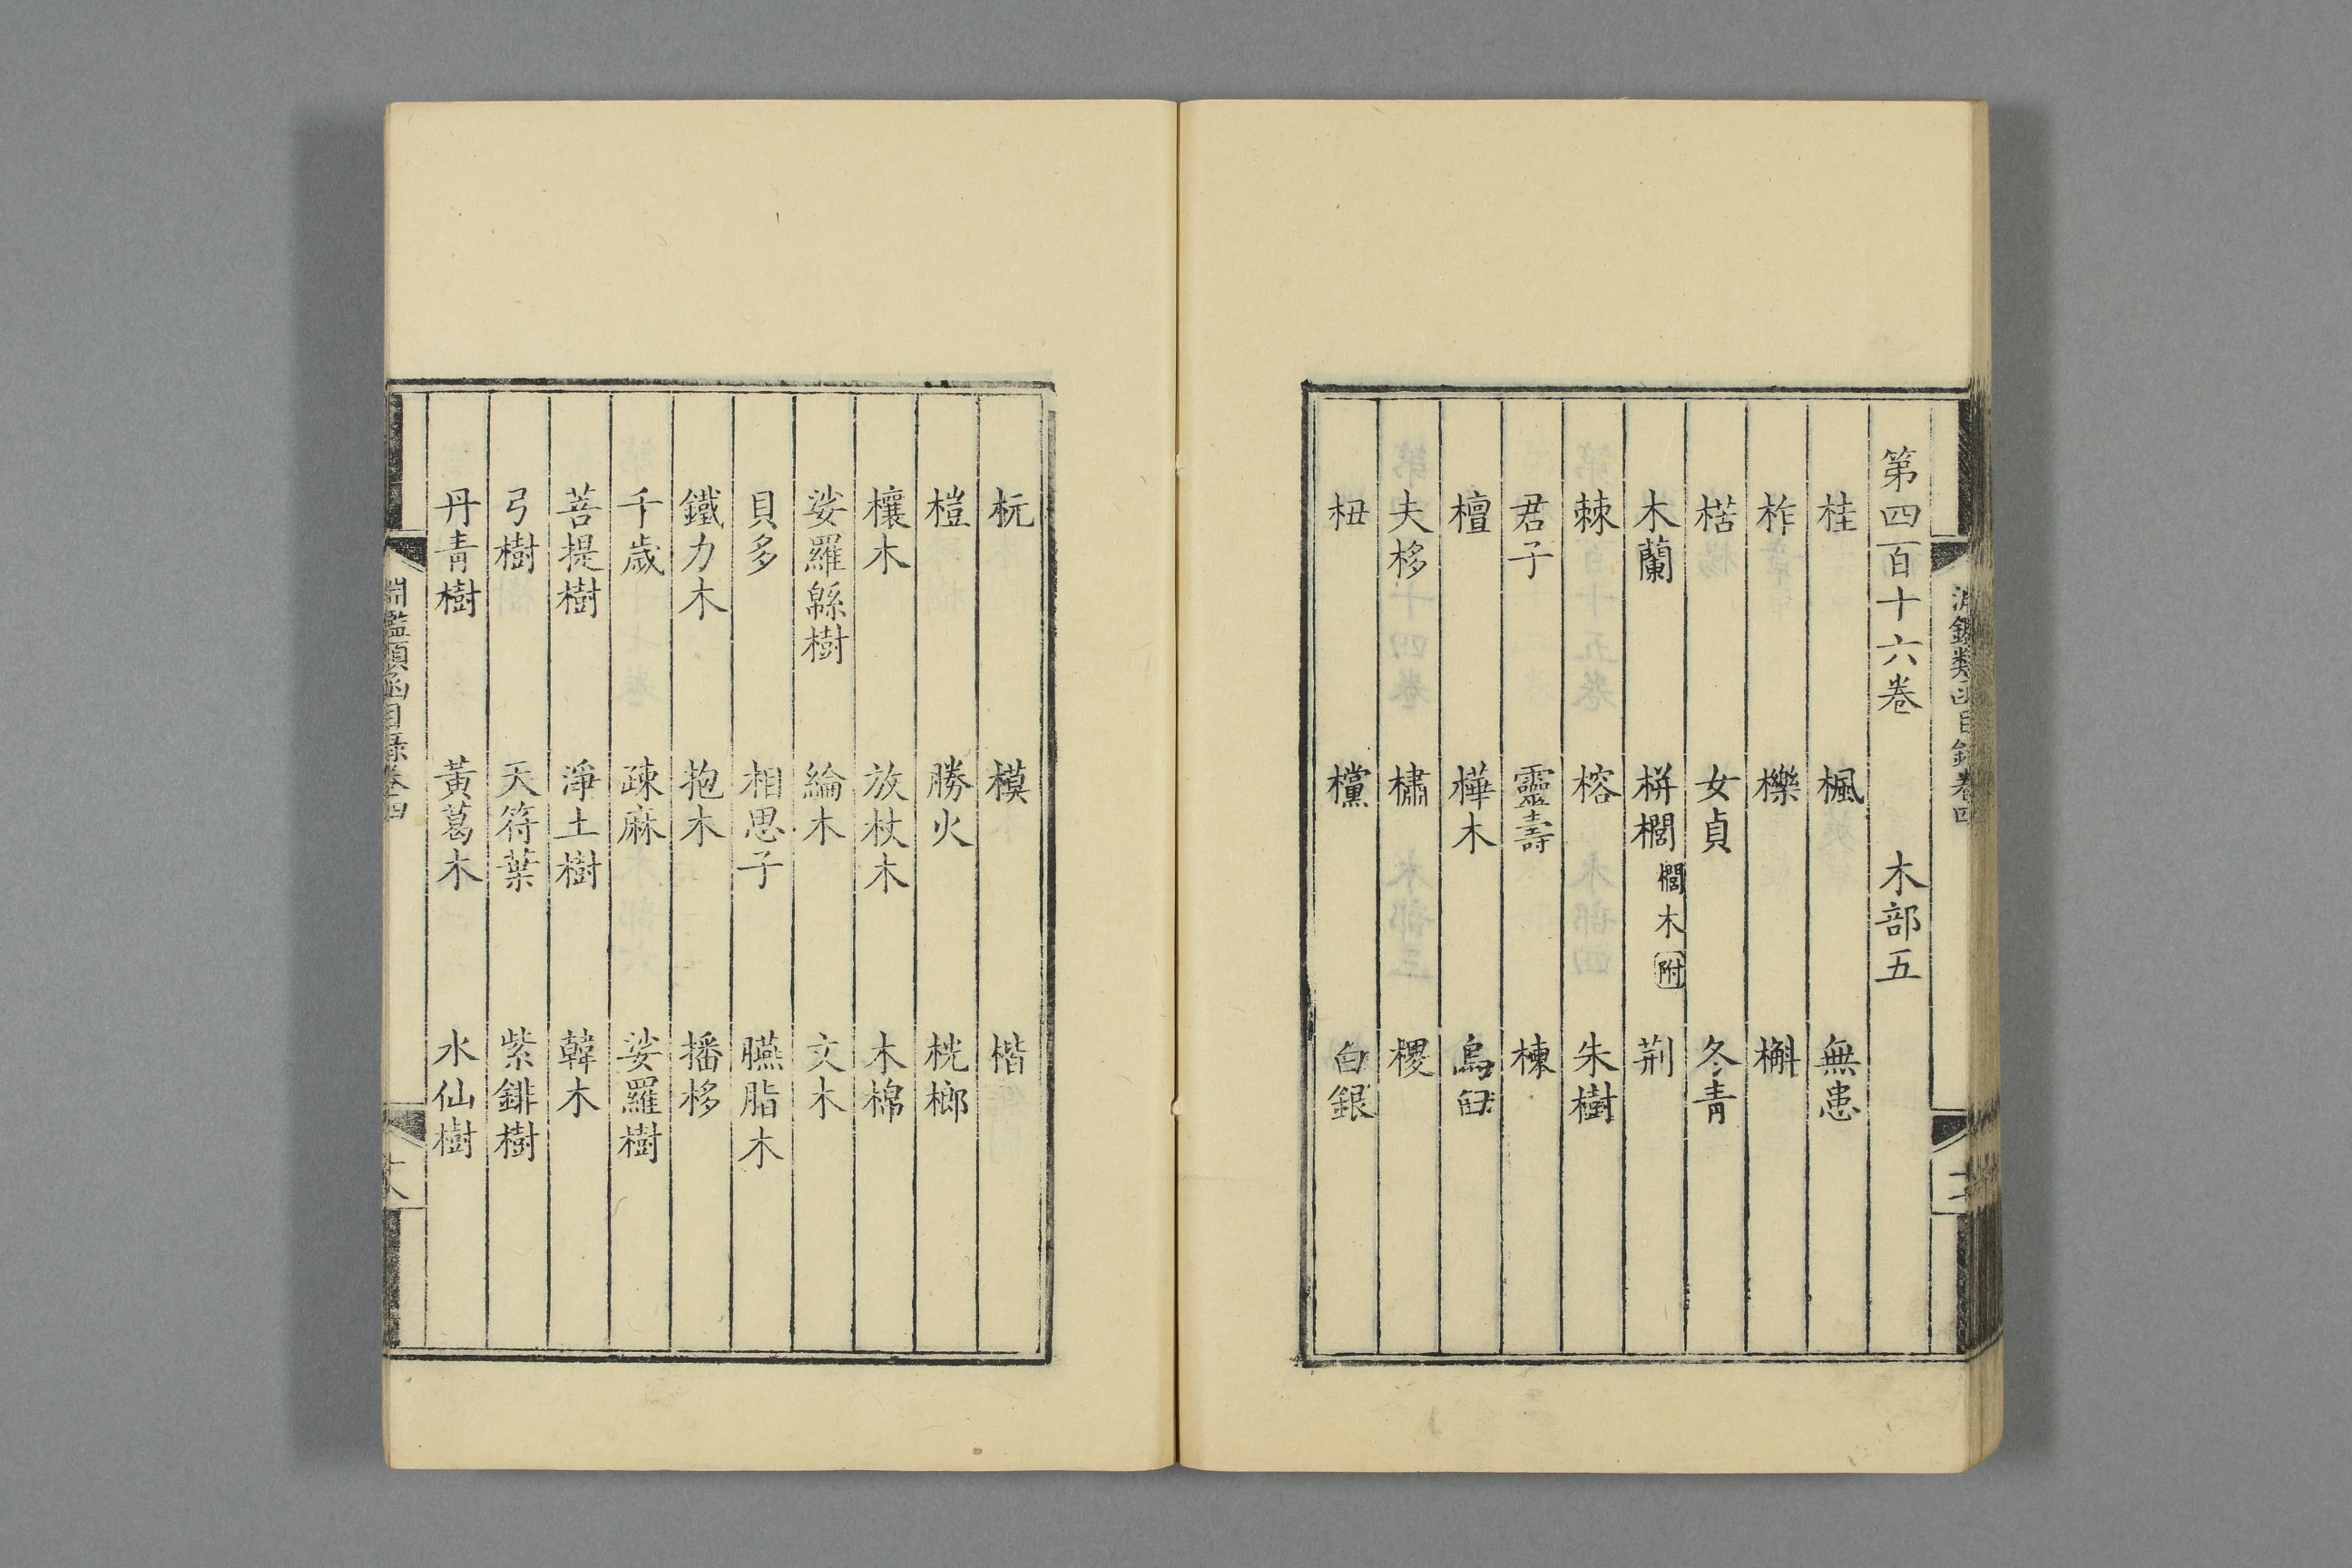 第四百十六卷　木部五
桂　楓　無患
柞　櫟　槲
楛　女貞　冬青
木蘭　栟櫚　櫚木附　荆
棘　榕　朱樹
君子　靈壽　楝
檀　樺木　烏臼
夫栘　橚　㮨
杻　欓　白銀
杬　模　楷
榿　勝火　桄榔
欀木　放杖木　木棉
娑羅緜樹　綸木　文木
貝多　相思子　臙脂木
鐵力木　抱木　播栘
千歲　疎麻　娑羅樹
菩提樹　淨土樹　韓木
弓樹　天符葉　紫緋樹
丹青樹　黃葛木　水仙樹
淵鑑類函目錄卷四